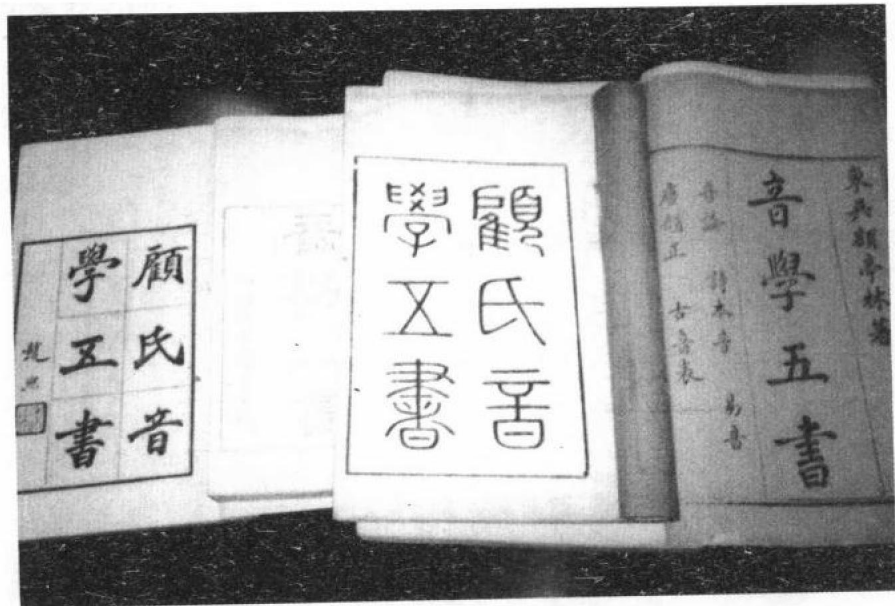 顧氏音
學五書
趙熙
顧氏音
學五書
東吳顧亭林著
音學五書
音論 詩本音 易音
唐韻正 古音表